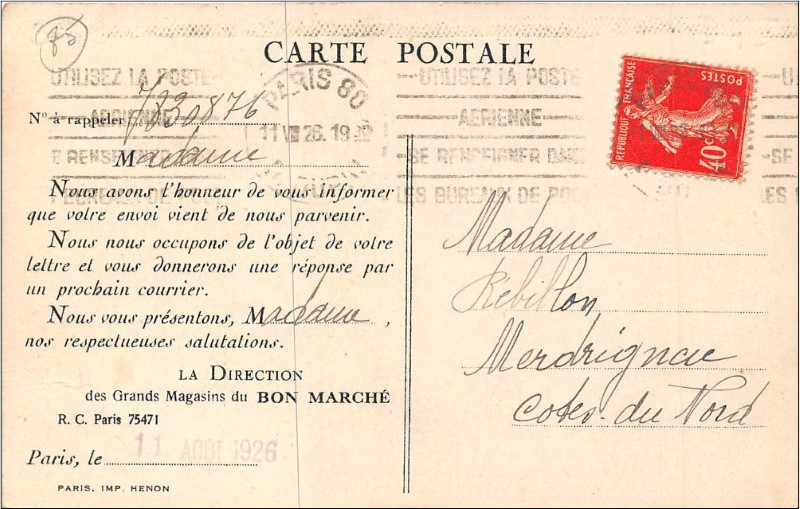 75
CARTE POSTALE
UTILISEZ LA POSTE
AERIENNE
PARIS 80
11 VIII 26. 19
—UTILISEZ LA POSTE
AERIENNE
—SE RENSEIGNER DANS
LES BUREAUX DE POS
REPUBLIQUE FRANÇAISE
POSTES
40c
N° à rappeler
Madame
Nous avons l'honneur de vous informer
que votre envoi vient de nous parvenir.
Nous nous occupons de l'objet de votre
lettre et vous donnerons une réponse par
un prochain courrier.
Nous vous présentons, Madame,
nos respectueuses salutations.
LA DIRECTION
des Grands Magasins du BON MARCHÉ
R. C. Paris 75471
Paris, le 11 AOUT 1926
PARIS. IMP. HENON
Madame
Rébillon
Merdrignac
Cotes-du Nord